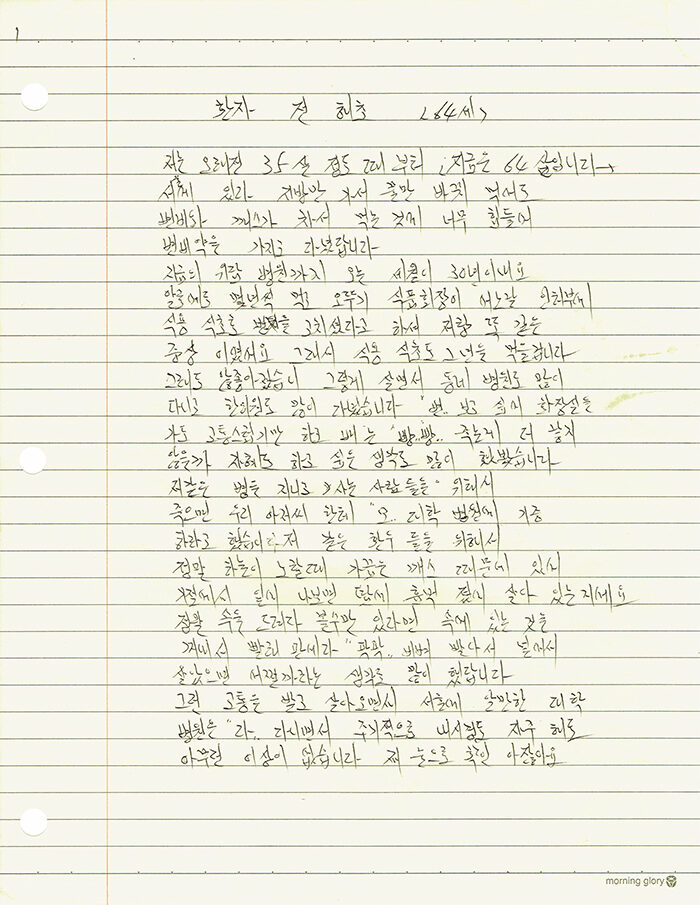 1
환자 전 희초 (64세)
저는 오래전 35살 정도 때 부터 지금은 64 살입니다
있다 저방만 가서 물만 바꿔 먹어도
변비와 깨스가 차서 먹는 것에 너무 힘들어
변비약을 가지고 다녔답니다
지금의 위담 병원까지 오는 세월이 30년이네요
알로에도 몇년씩 먹고 오뚜기 식품회장이 어느날 인터뷰에
식용 식초로 변비을 고치셨다고 하셔 저랑 똑 같은
증상 이였어요 그래서 식용 식초도 그 년을 먹을겁니다
그래도 않좋아졌습니 그렇게 살면서 동네 병원도 많이
다니고 한의원도 많이 가봤습니다 "변.. 보고 싶어 화장실을
가도 고통스럽기만 하고 배는 "빵..빵.. 죽는게 더 낳지
않을까 자해도 하고 싶은 생각도 많이 했봤습니다
저같은 병을 지니고 사는 사람들을" 위해서
죽으면 우리 아저씨 한테 "오.. 대학 병원에 기증
하라고 했습니다. 저 같은 환우 들을 위해서
정말 하늘이 노랄때 가끔은 깨스 때문에 있어
일어 나보면 땀에 흠벅 젖어 살아 있는지에요
정말 속을 드려다 볼수만 있다면 속에 있는 것을
꺼내서 빨래 판에다 "팍팍.. 비벼 빨아서 널어서
살았으면 어쩔까라는 생각도 많이 했답니다
그런 고통을 받고 살아오면서 서울에 알만한 대학
병원은 "다.. 다니면서 주기적으로 내시경도 자주 해도
아무런 이상이 없습니다 제 눈으로 확인 아잖아요
morning glory